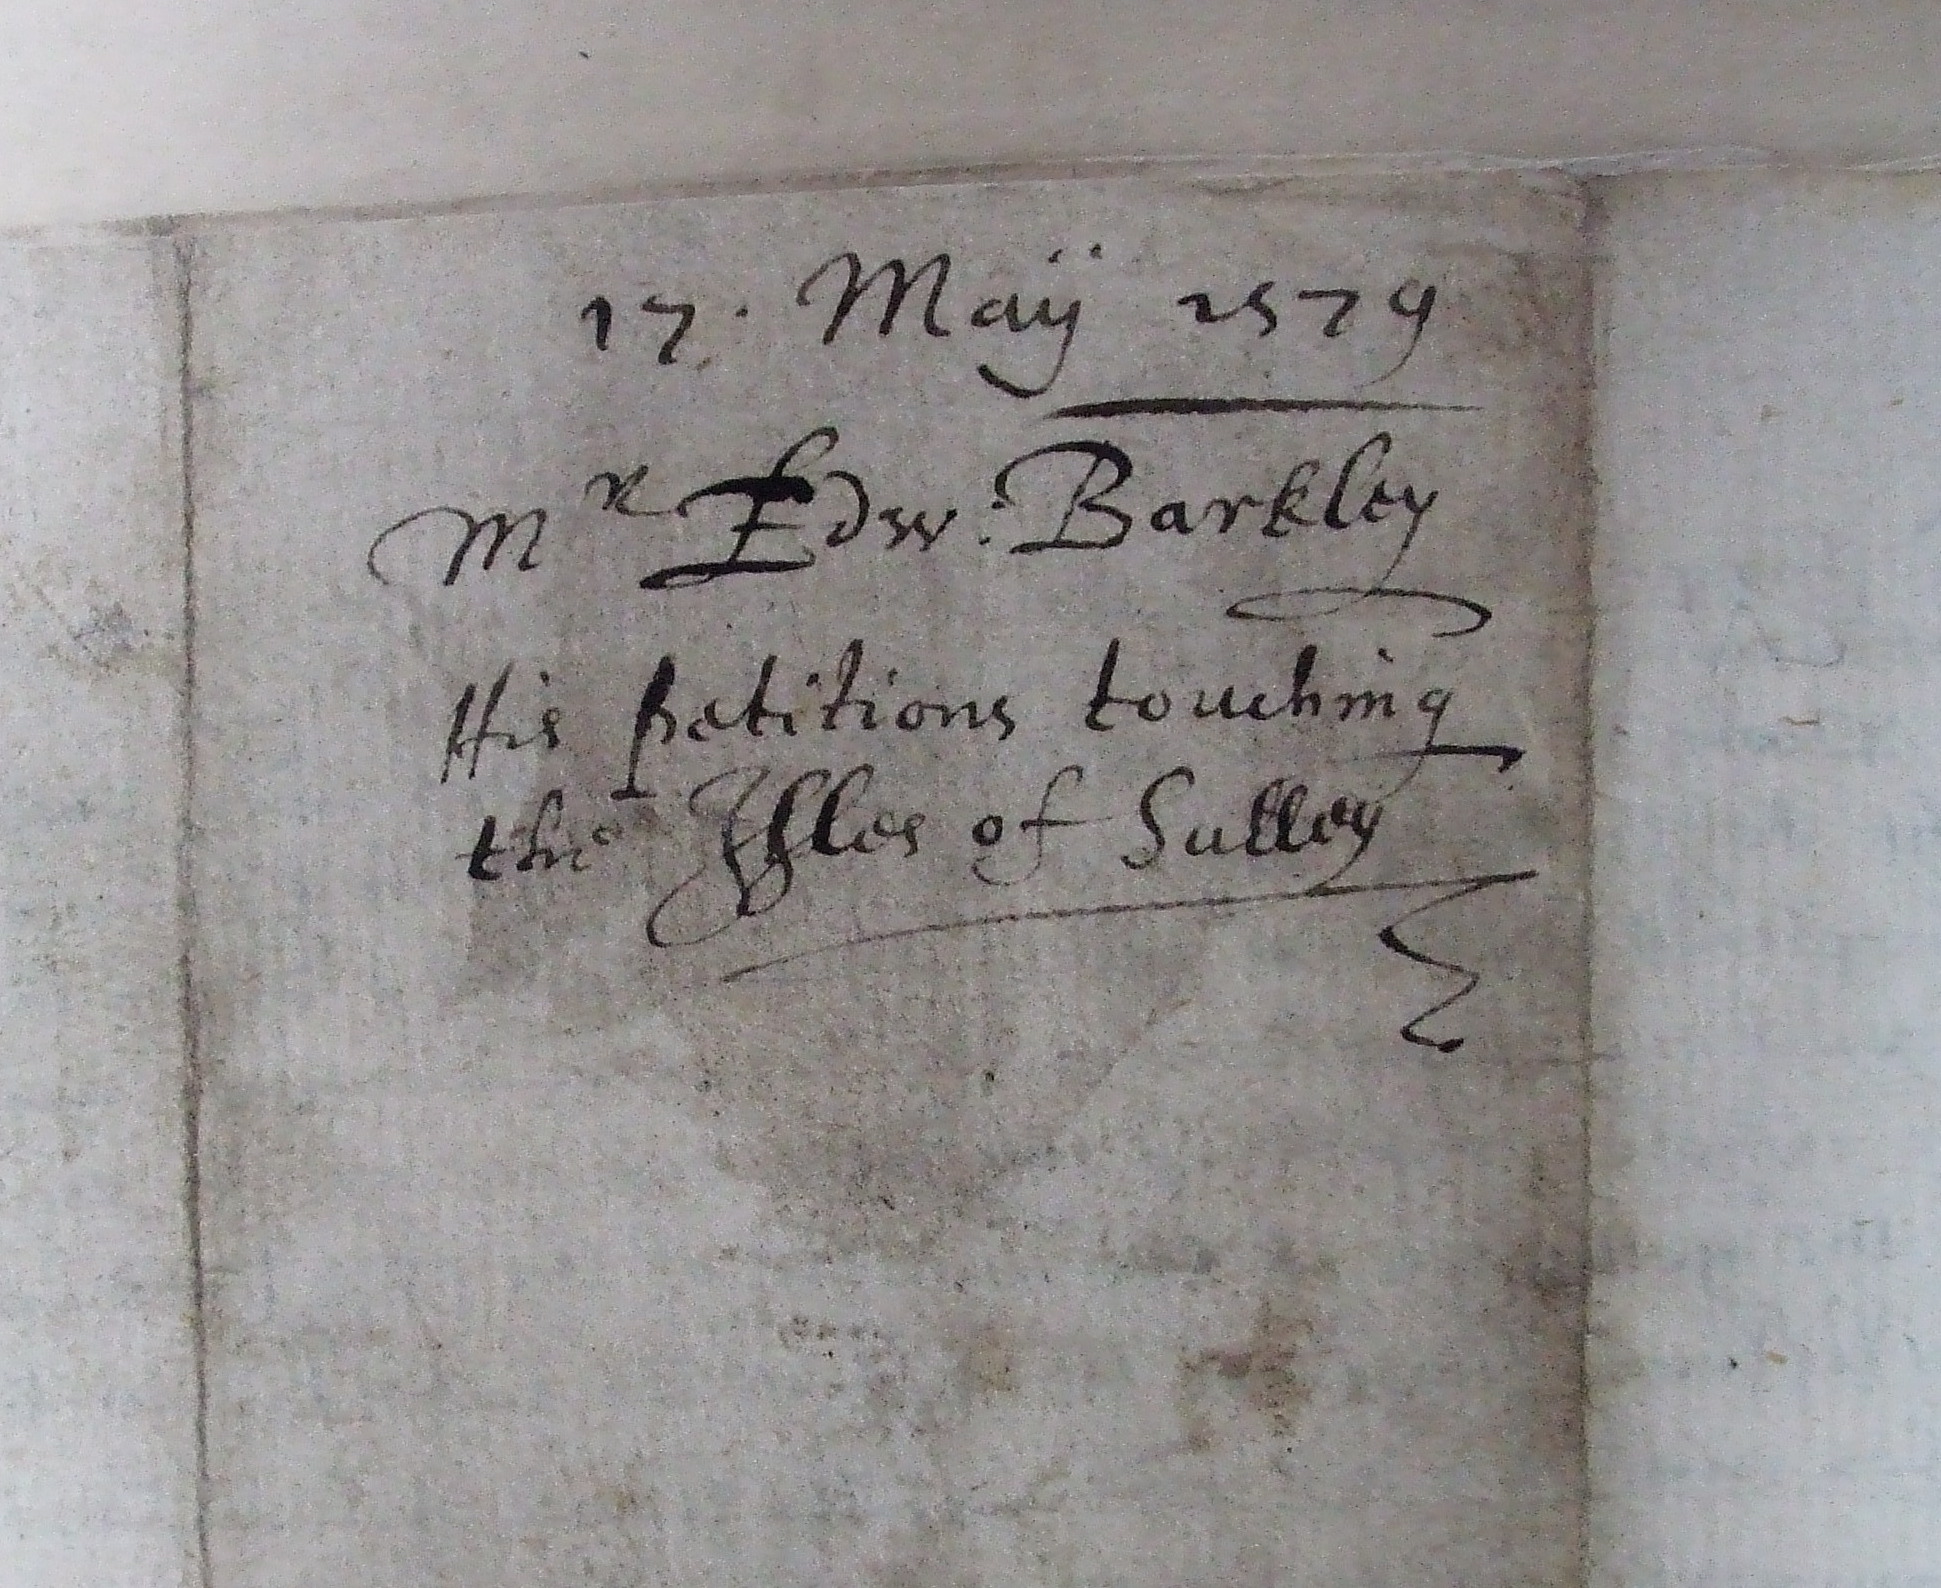 17. Maij 1579
Mr Edw: Barkley
His petitions touching
the Ysles of Sulley